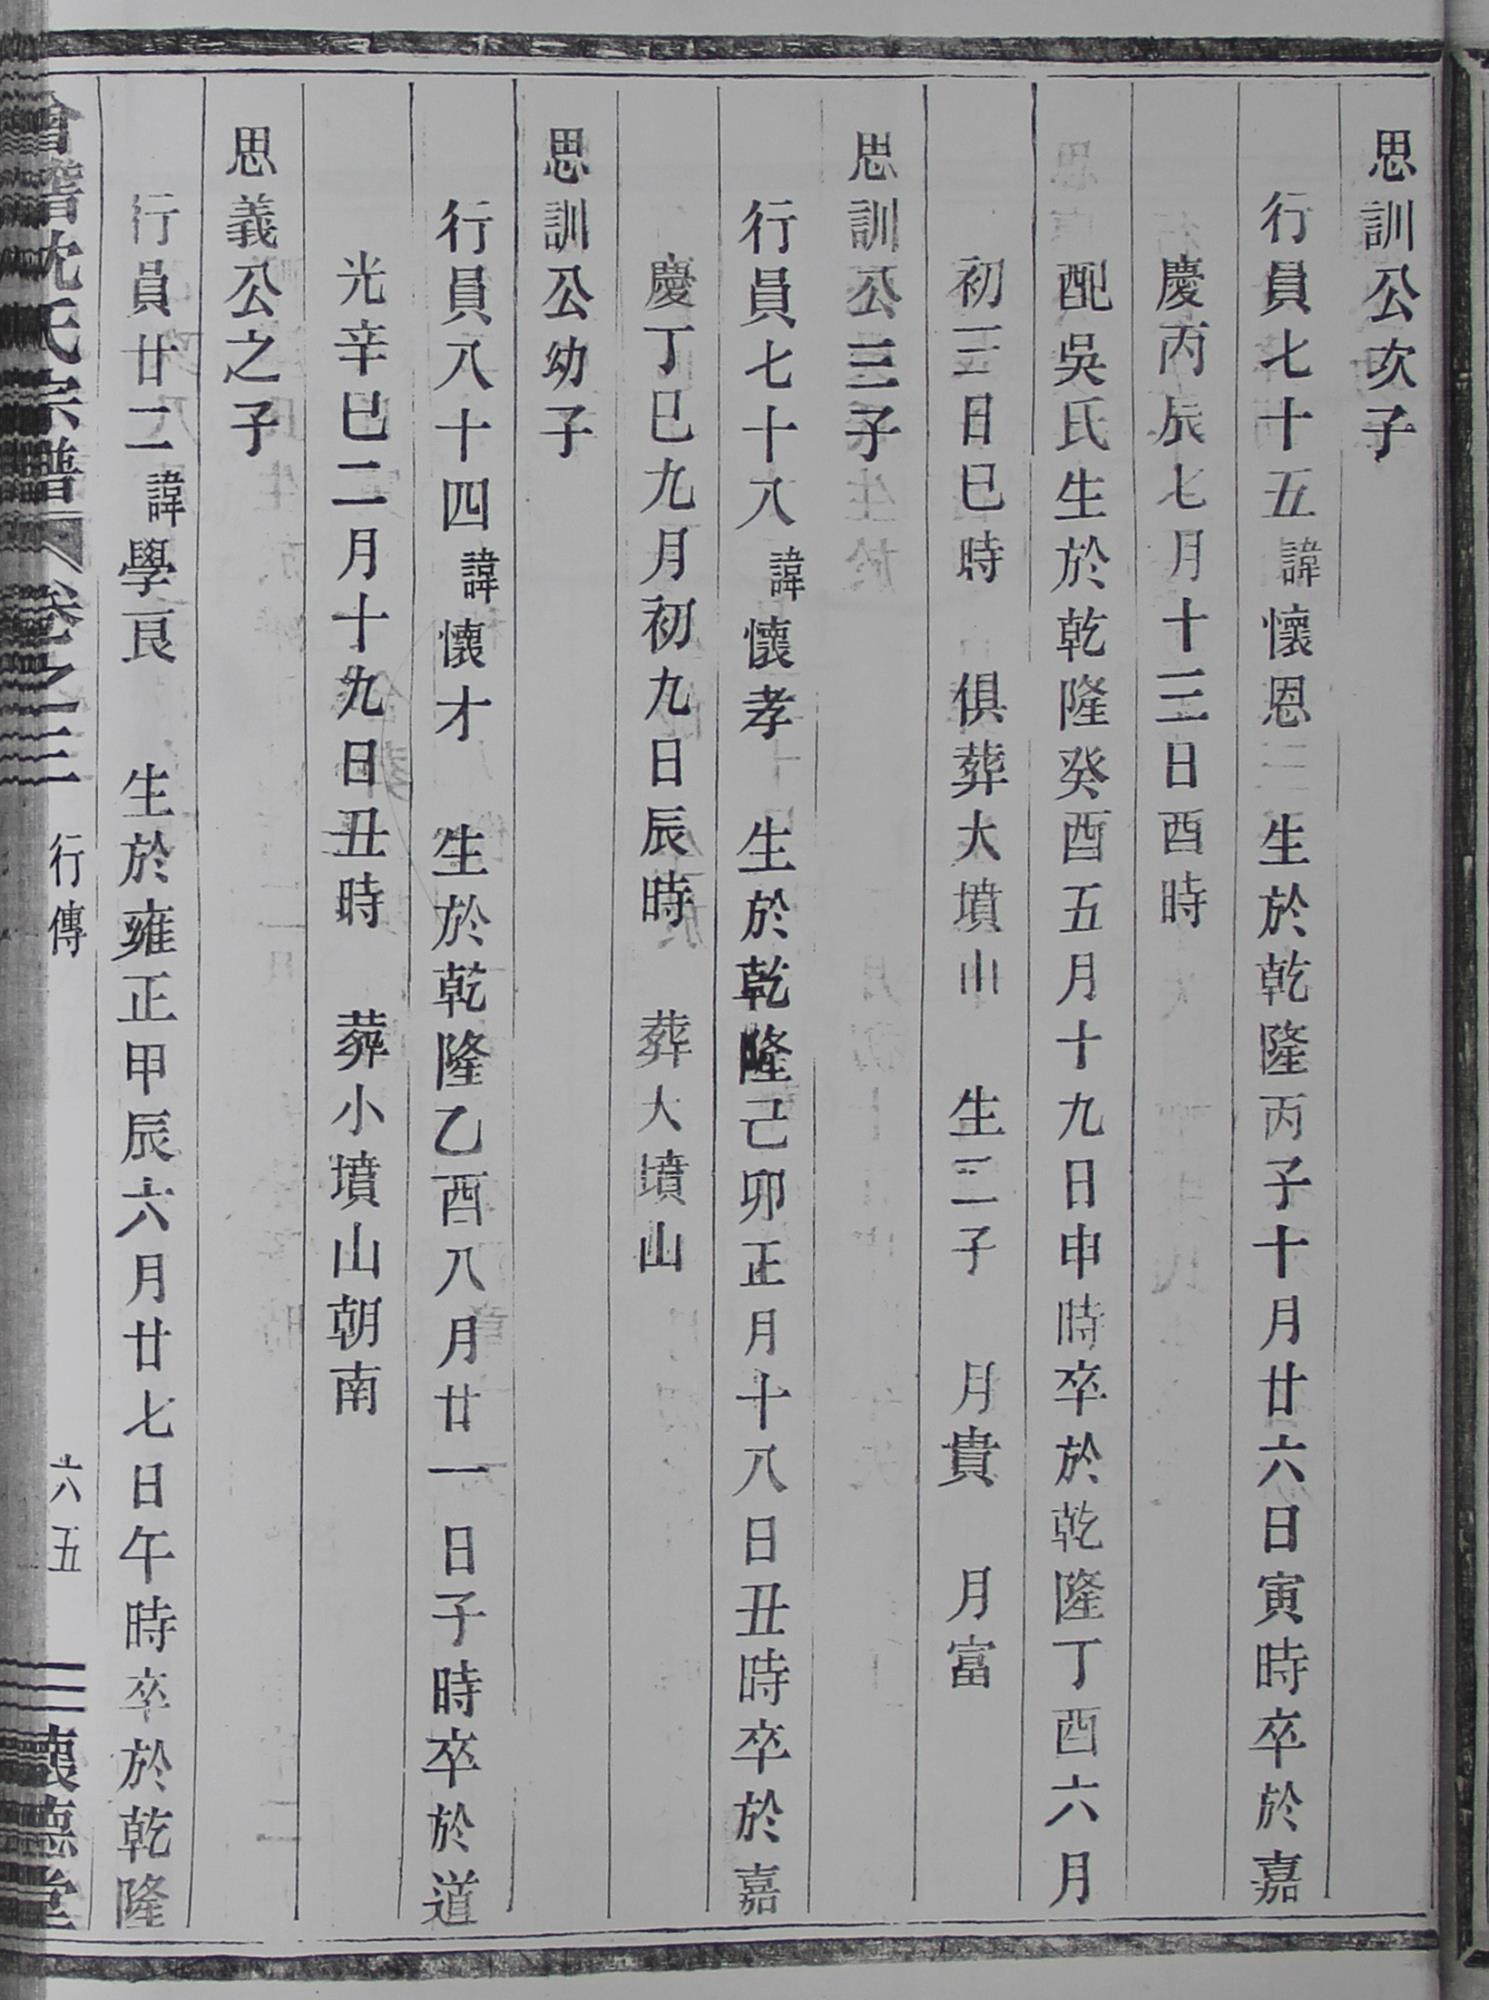 思訓公次子
行員七十五諱懷恩 生於乾隆丙子十月廿六日寅時卒於嘉
慶丙辰七月十三日酉時
配吳氏生於乾隆癸酉五月十九日申時卒於乾隆丁酉六月
初三日巳時 俱葬大墳山 生二子 月貴 月富
思訓公三子
行員七十八諱懷孝 生於乾隆己卯正月十八日丑時卒於嘉
慶丁巳九月初九日辰時 葬大墳山
思訓公幼子
行員八十四諱懷才 生於乾隆乙酉八月廿一日子時卒於道
光辛巳二月十九日丑時 葬小墳山朝南
思義公之子
行員廿二諱學良 生於雍正甲辰六月廿七日午時卒於乾隆
會稽沈氏宗譜 卷之三 行傳 六五 懷德堂